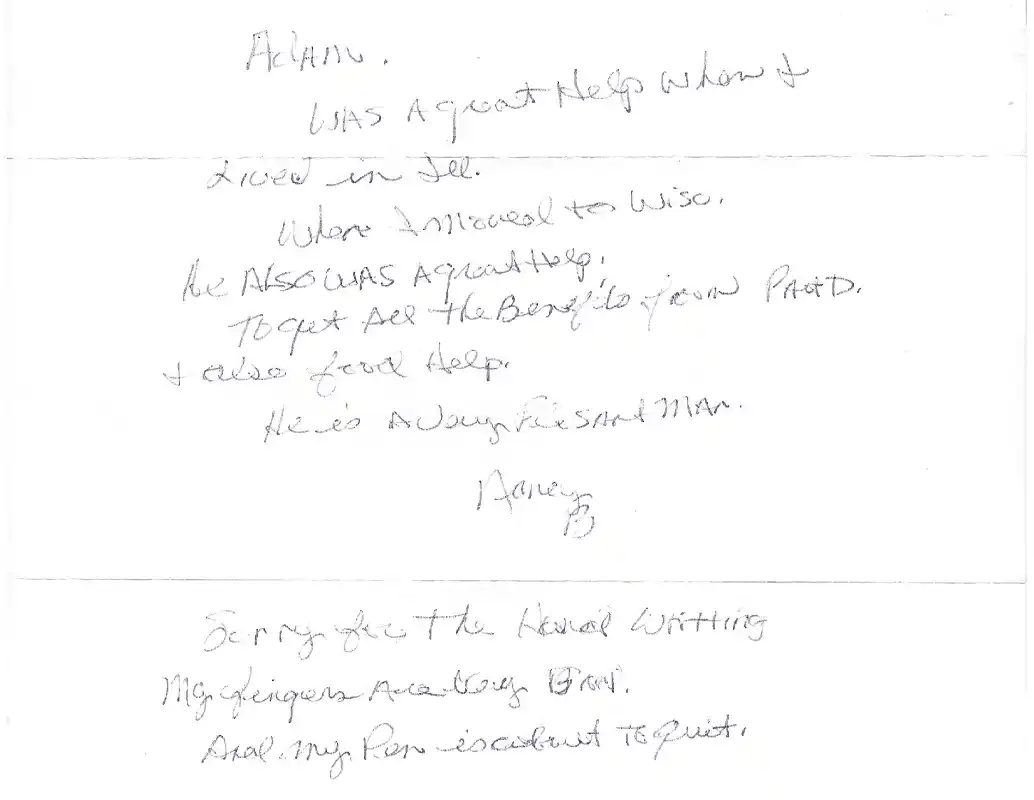 Adam.
WAS A great Help when I
Lived in Ill.
When I moved to Wisc.
He ALSO WAS A great Help.
To get All the Benefits from
& also food Help.
He is A Very MAN.
Nancy
B
Sorry for the Hand Writting
My fingers Are Very BAD.
And my Pen is about To quit.